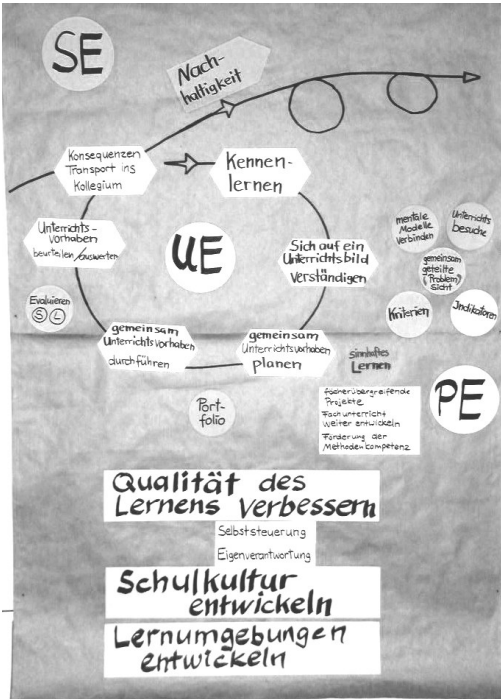 SE
Nach-
haltigkeit
Konsequenzen
Transport ins
Kollegium
Kennen-
lernen
Unterrichts-
vorhaben
beurteilen/auswerten
UE
Sich auf ein
Unterrichtsbild
verständigen
mentale
Modelle
verbinden
Unterrichts
besuche
gemeinsam
geteilte
(Problem)
sicht
Kriterien
Indikatoren
Evaluieren
S L
gemeinsam
Unterrichtsvorhaben
durchführen
gemeinsam
Unterrichtsvorhaben
planen
sinnhaftes
Lernen
PE
Port-
folio
fächerübergreifende
Projekte
Fachunterricht
weiter entwickeln
Förderung der
Methodenkompetenz
Qualität des
Lernens verbessern
Selbststeuerung
Eigenverantwortung
Schulkultur
entwickeln
Lernumgebungen
entwickeln